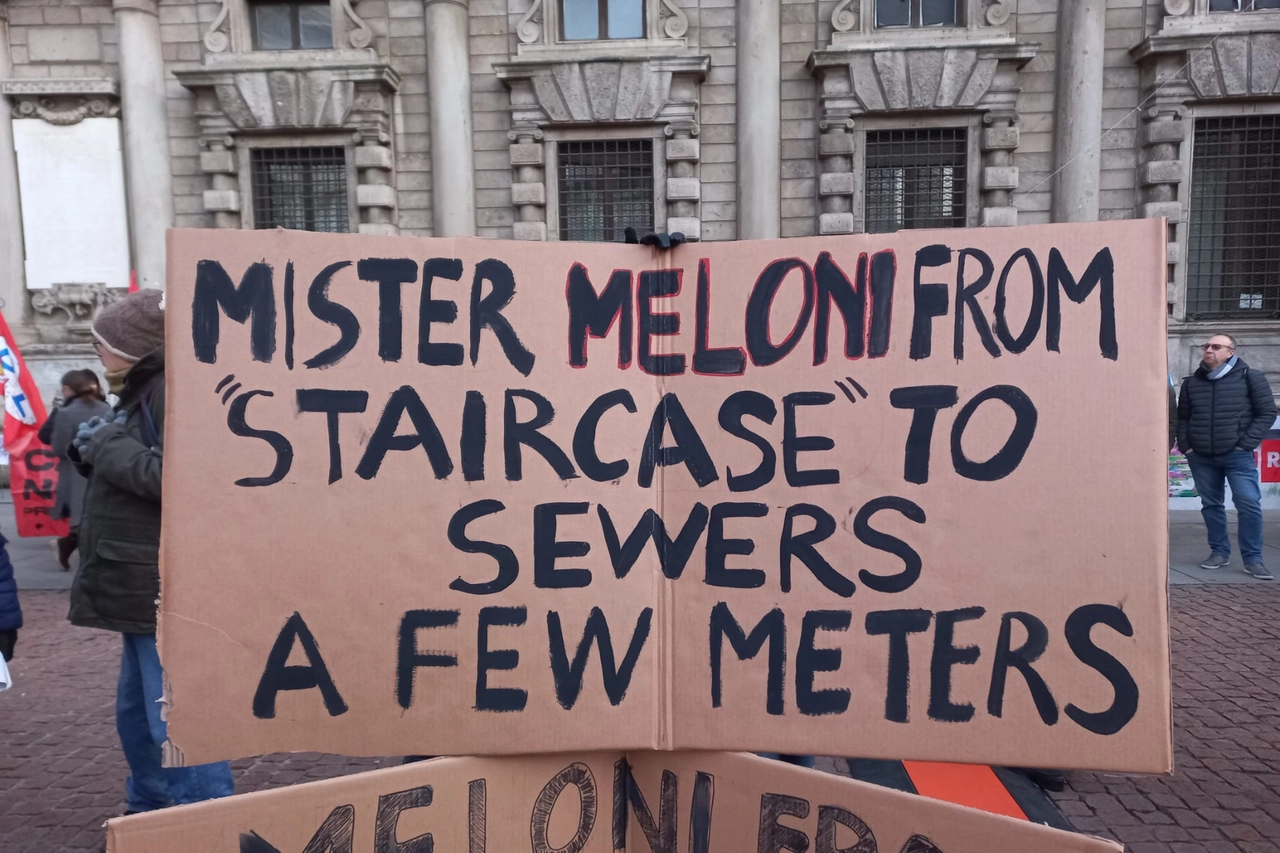 MISTER MELONI FROM
"STAIRCASE" TO
SEWERS
A FEW METERS
MELONI FRO